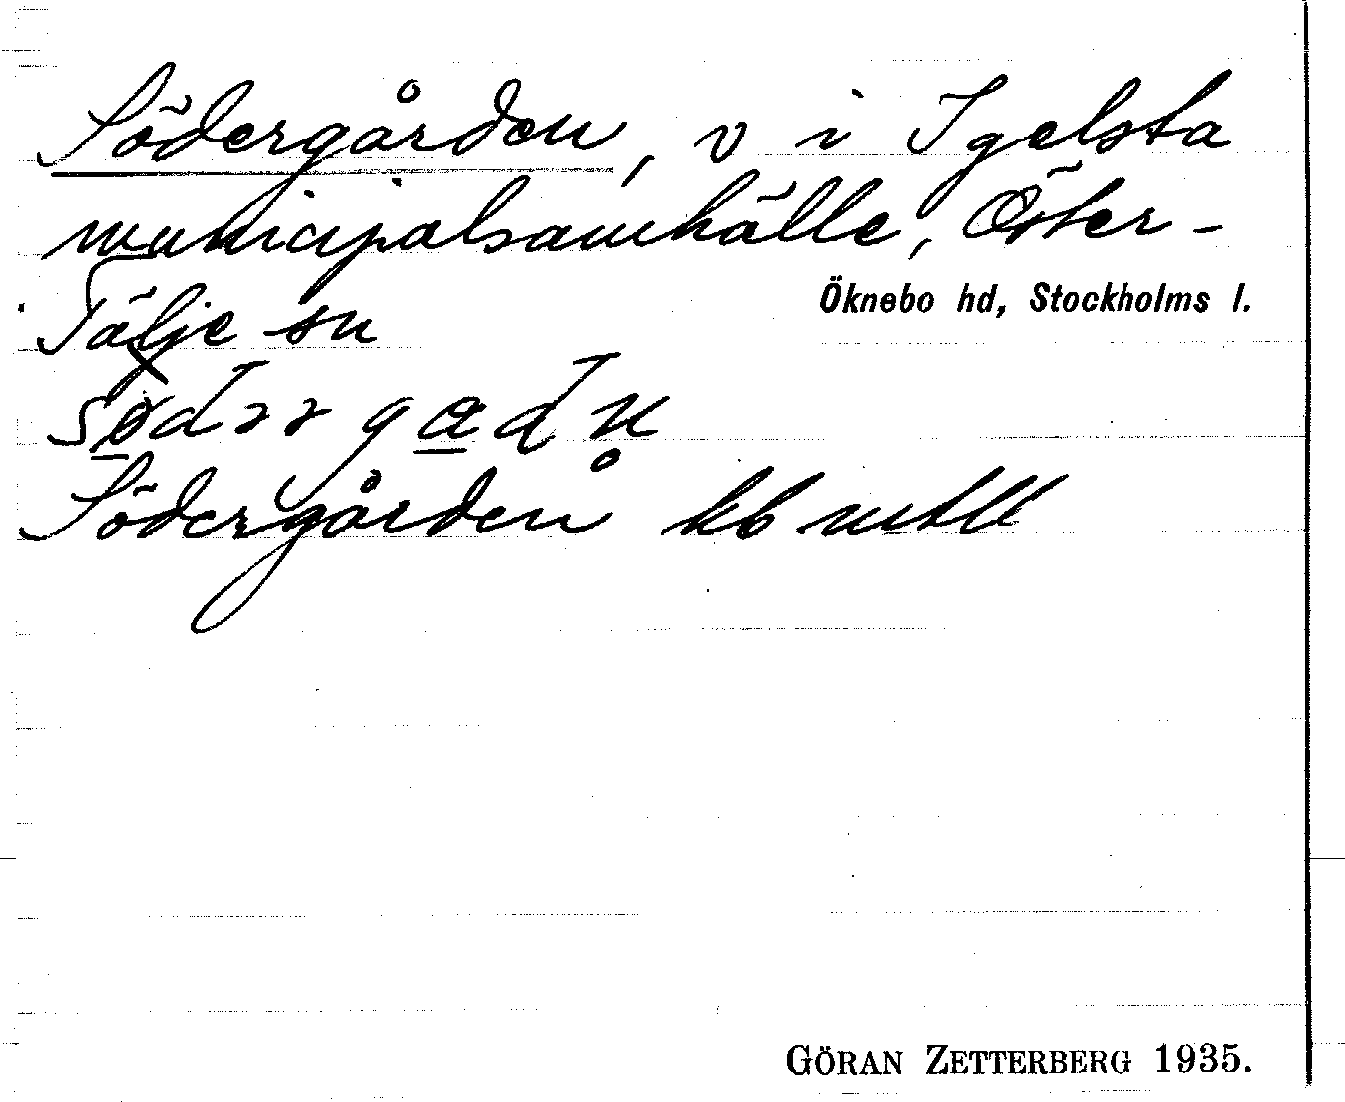 Södergården, v i Igelsta
municipalsamhälle, Öster-
Tälje sn
Öknebo hd, Stockholms l.
Södergården kb mtll
GÖRAN ZETTERBERG 1935.